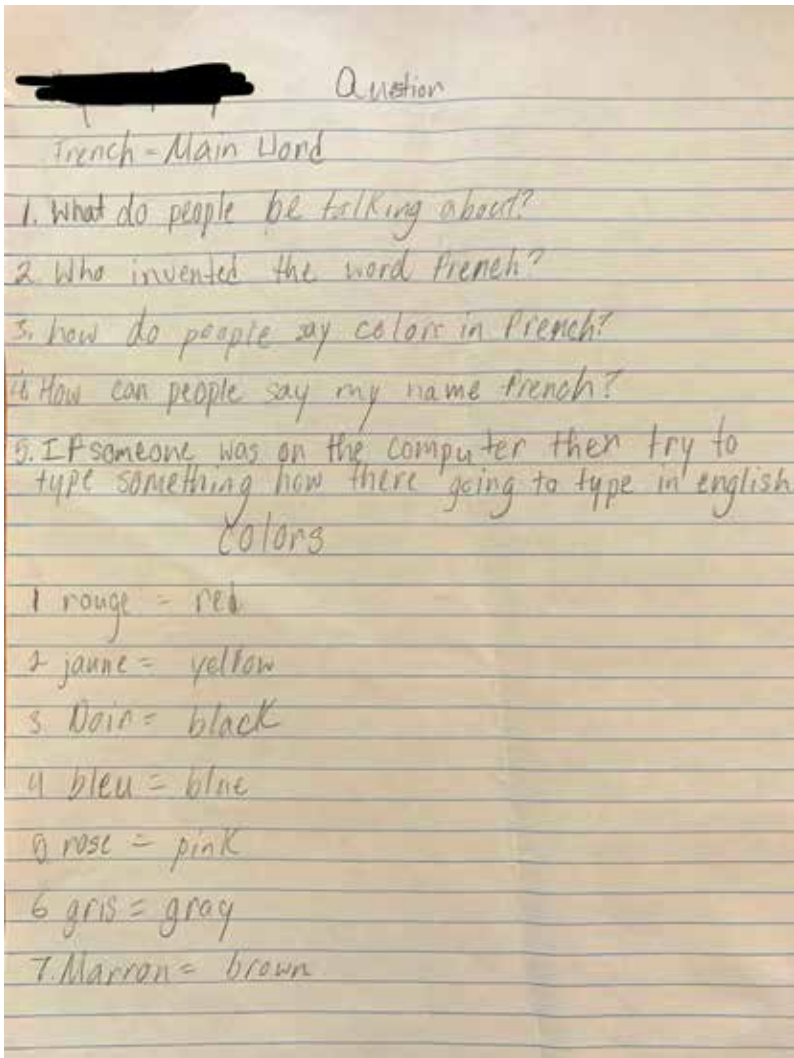 Question
French = Main Word
1. What do people be talking about?
2 Who invented the word French?
3. how do people say colors in French?
4. How can people say my name french?
5. If someone was on the computer then try to
type something how there going to type in english
Colors
1 rouge = red
2 jaune = yellow
3 Noir = black
4 bleu = blue
5 rose = pink
6 gris = gray
7. Marron = brown